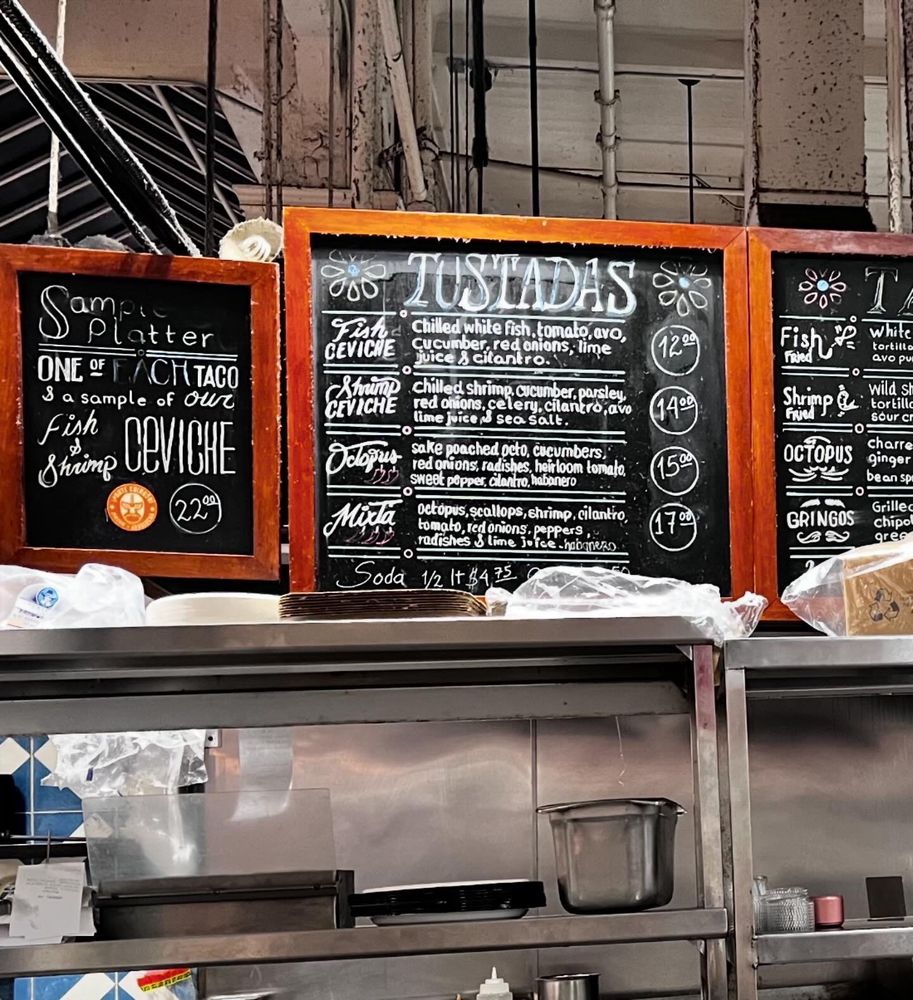 Sample
Platter
ONE OF EACH TACO
& a sample of our
Fish
&
Shrimp
CEVICHE
22.00
TUSTADAS
Fish
CEVICHE
Chilled white fish, tomato, avo,
cucumber, red onions, lime
juice & cilantro.
12.00
Shrimp
CEVICHE
chilled shrimp, cucumber, parsley,
red onions, celery, cilantro, avo
lime juice, & sea salt.
14.00
Octopus
sake poached octo, cucumbers,
red onions, radishes, heirloom tomato,
sweet pepper, cilantro, habanero
15.00
Mixta
octopus, scallops, shrimp, cilantro,
tomato, red onions, peppers,
radishes & lime juice. habanero
17.00
Soda 1/2 lt $4.75
TA
Fish
Fried
white
tortilla
avo pu
Shrimp
Fried
Wild sh
tortill
sour cr
OCTOPUS
charre
ginger
bean sp
GRINGOS
Grille
chipo
gree